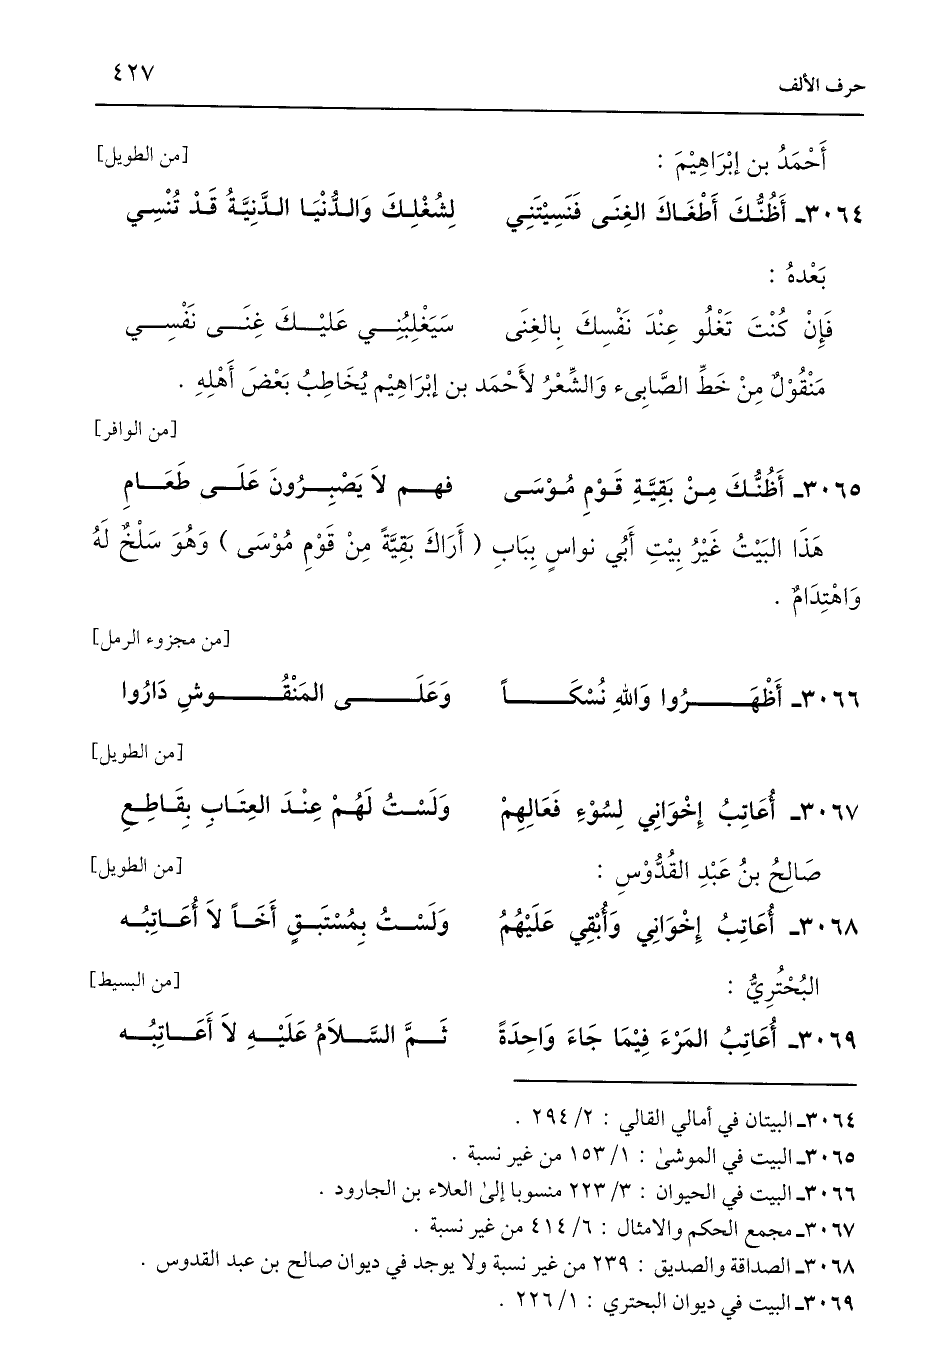 حرف الألف ٤٢٧
أَحْمَدُ بن إبْرَاهِيْمَ : [من الطويل]
٣٠٦٤ـ أَظُنُّكَ أَطْغَاكَ الغِنَى فَنَسِيْتَنِي لِشُغْلِكَ وَالدُّنْيَا الدَّنِيَّةُ قَدْ تُنْسِي
بَعْدهُ :
فَإِنْ كُنْتَ تَعْلُو عِنْدَ نَفْسِكَ بِالغِنَى سَيَعْلِيْنِي عَلَيْكَ غِنَى نَفْسِي
مَنْقُوْلٌ مِنْ خَطِّ الصَّابِىء وَالشِّعْرُ لأَحْمَد بن إبْرَاهِيْم يُخَاطِبُ بَعْضَ أَهْلِهِ .
[من الوافر]
٣٠٦٥ـ أَظُنُّكَ مِنْ بَقِيَّةِ قَوْمِ مُوْسَى فهم لاَ يَصْبِرُونَ عَلَى طَعَامِ
هَذَا البَيْتُ غَيْرُ بيْتِ أَبُي نواسٍ بِبَابِ ( أَرَاكَ بَقِيَّةً مِنْ قَوْمِ مُوْسَى ) وَهُوَ سَلْخٌ لَهُ
وَاهْتِدَامٌ .
[من مجزوء الرمل]
٣٠٦٦ـ أَظْهَرُوا وَاللهِ نُسْكَاً وَعَلَى المَنْقُوشِ دَارُوا
[من الطويل]
٣٠٦٧ـ أُعَاتِبُ إخْوَانِي لِسُوْءِ فَعَالِهِمْ وَلَسْتُ لَهُمْ عِنْدَ العِتَابِ بِقَاطِعِ
صَالِحُ بنُ عَبْدِ القُدُّوْسِ : [من الطويل]
٣٠٦٨ـ أُعَاتِبُ إخْوَانِي وَأُبْقِي عَلَيْهُمُ وَلَسْتُ بِمُسْتَبقٍ أَخَاً لاَ أُعَاتِبُه
البُحْتُرِيُّ : [من البسيط]
٣٠٦٩ـ أُعَاتِبُ المَرْءَ فِيْمَا جَاءَ وَاحِدَةً ثَمَّ السَّلاَمُ عَلَيْهِ لاَ أُعَاتِبُه
٣٠٦٤ـ البيتان في أمالي القالي : ٢/ ٢٩٤ .
٣٠٦٥ـ البيت في الموشىٰ : ١/ ١٥٣ من غير نسبة .
٣٠٦٦ـ البيت في الحيوان : ٣/ ٢٢٣ منسوبا إلىٰ العلاء بن الجارود .
٣٠٦٧ـ مجمع الحكم والامثال : ٦/ ٤١٤ من غير نسبة .
٣٠٦٨ـ الصداقة والصديق : ٢٣٩ من غير نسبة ولا يوجد في ديوان صالح بن عبد القدوس .
٣٠٦٩ـ البيت في ديوان البحتري : ١/ ٢٢٦ .